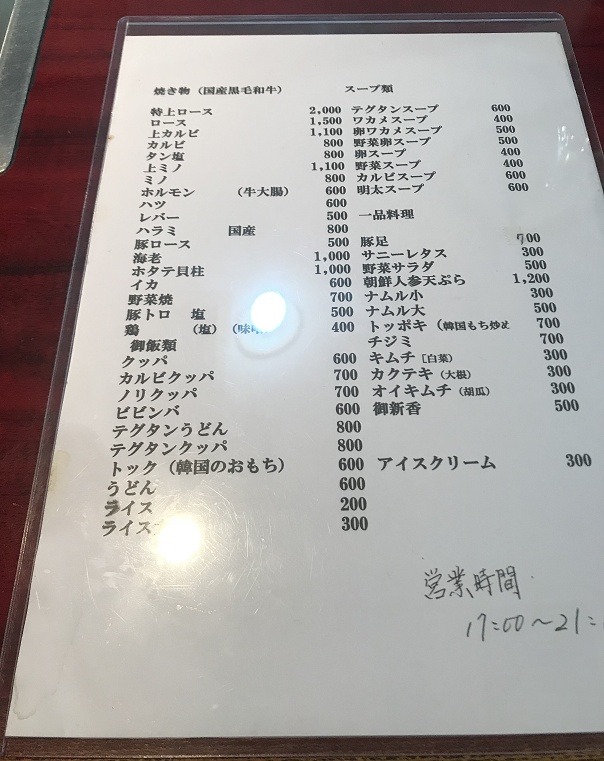 焼き物（国産黒毛和牛）
特上ロース 2,000
ロース 1,500
上カルビ 1,100
カルビ 800
タン塩 800
上ミノ 1,100
ミノ 800
ホルモン （牛大腸） 600
ハツ 600
レバー 500
ハラミ 国産 800
豚ロース 500
海老 1,000
ホタテ貝柱 1,000
イカ 600
野菜焼 700
豚トロ 塩 500
鶏 （塩） 400
御飯類
クッパ 600
カルビクッパ 700
ノリクッパ 700
ビビンバ 600
テグタンうどん 800
テグタンクッパ 800
トック（韓国のおもち） 600
うどん 600
ライス 200
ライス 300
スープ類
テグタンスープ 600
ワカメスープ 400
卵ワカメスープ 500
野菜卵スープ 500
卵スープ 400
野菜スープ 400
カルビスープ 600
明太スープ 600
一品料理
豚足 700
サニーレタス 300
野菜サラダ 500
朝鮮人参天ぷら 1,200
ナムル小 300
ナムル大 500
トッポキ（韓国もち炒め 700
チジミ 700
キムチ［白菜］ 300
カクテキ（大根） 300
オイキムチ（胡瓜） 300
御新香 500
アイスクリーム 300
営業時間
17:00～21: